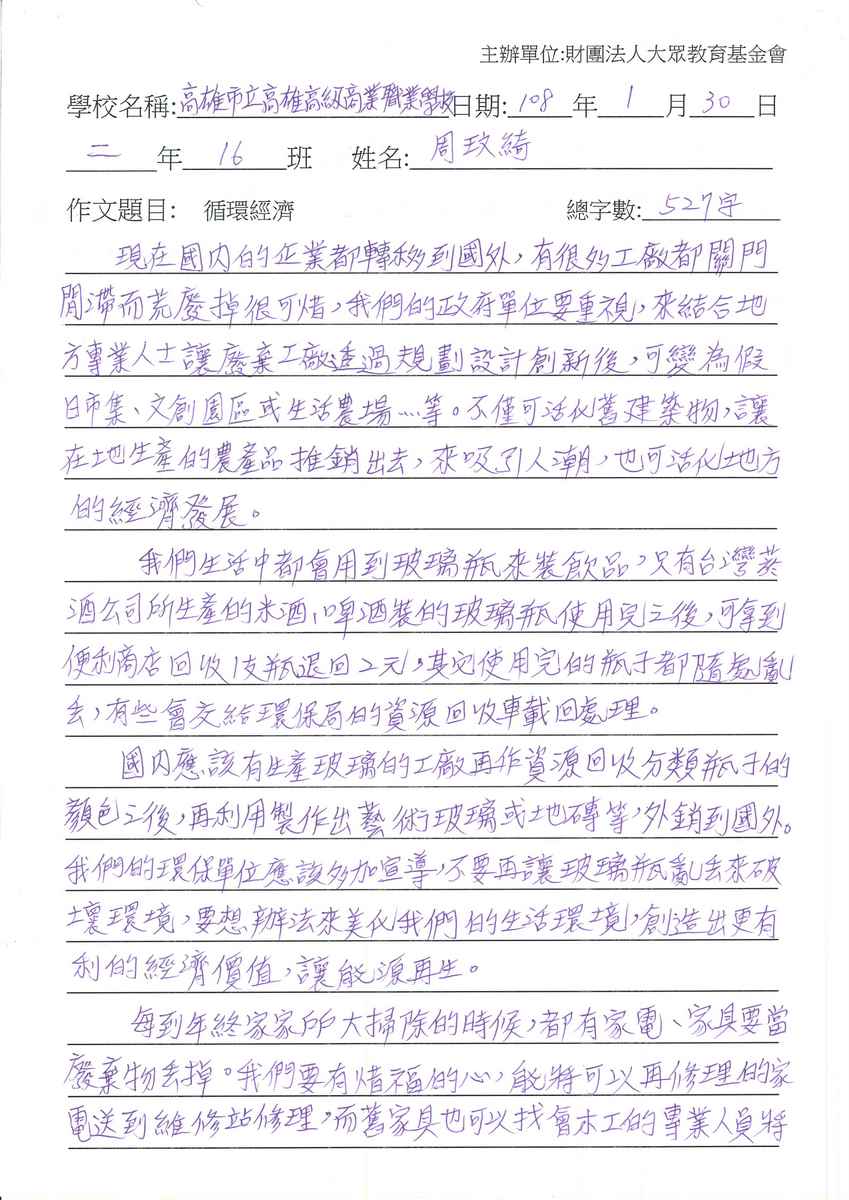 主辦單位:財團法人大眾教育基金會
學校名稱:高雄市立高雄高級商業職業學校日期:108年1月30日
二年16班 姓名:周玟綺
作文題目: 循環經濟 總字數:527字
現在國內的企業都轉移到國外,有很多工廠都關門
閒滯而荒廢掉很可惜,我們的政府單位要重視,來結合地
方專業人士讓廢棄工廠透過規劃設計創新後,可變為假
日市集、文創園區或生活農場……等。不僅可活化舊建築物,讓
在地生產的農產品推銷出去,來吸引人潮,也可活化地方
的經濟發展。
我們生活中都會用到玻璃瓶來裝飲品,只有台灣菸
酒公司所生產的米酒、啤酒裝的玻璃瓶使用完之後,可拿到
便利商店回收1支瓶退回2元,其它使用完的瓶子都隨處亂
丟,有些會交給環保局的資源回收車載回處理。
國內應該有生產玻璃的工廠再作資源回收分類瓶子的
顏色之後,再利用製作出藝術玻璃或地磚等,外銷到國外。
我們的環保單位應該多加宣導,不要再讓玻璃瓶亂丟來破
壞環境,要想辦法來美化我們的生活環境,創造出更有
利的經濟價值,讓能源再生。
每到年終家家戶戶大掃除的時候,都有家電、家具要當
廢棄物丟掉。我們要有惜福的心,能將可以再修理的家
電送到維修站修理,而舊家具也可以找會木工的專業人員將